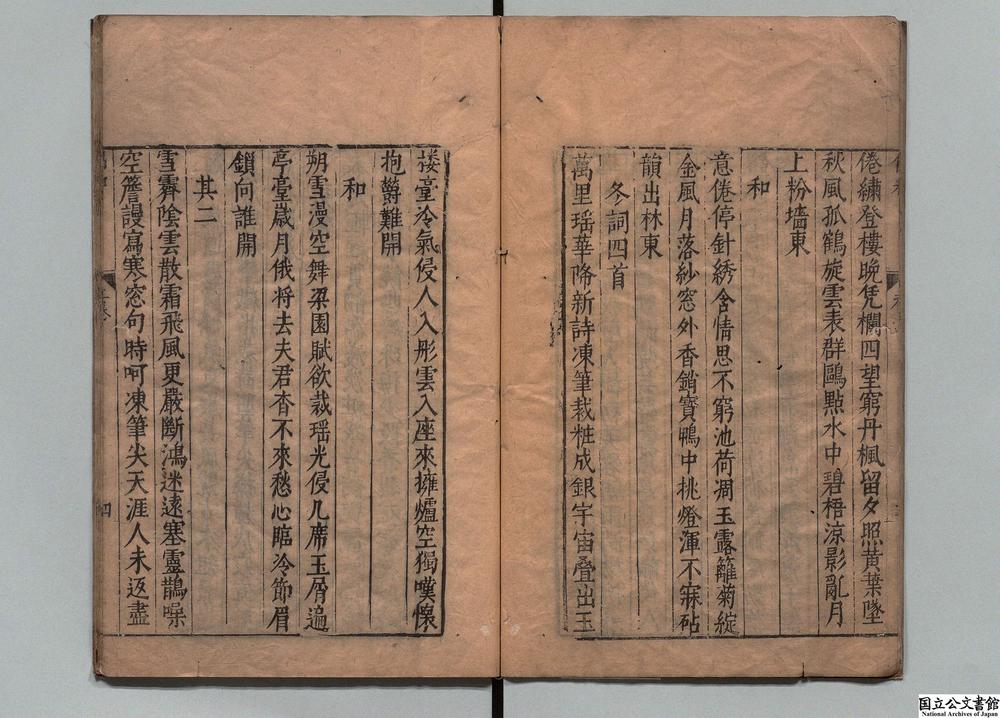 倦繡登樓晚凭欄四望窮丹楓留夕照黃葉墜
秋風孤鶴旋雲表群鷗點水中碧梧涼影亂月
上粉墻東
和
意倦停針綉含情思不窮池荷凋玉露籬菊綻
金風月落紗窓外香銷寶鴨中挑燈渾不寐砧
韻出林東
冬詞四首
萬里瑶華降新詩凍筆裁粧成銀宇宙叠出玉
樓臺冷氣侵人入彤雲入座來擁爐空獨嘆懷
抱欝難開
和
朔雪漫空舞梁園賦欲裁瑶光侵几席玉屑遍
亭臺歲月俄将去夫君杳不來愁心臨冷節眉
鎖向誰開
其二
雪霽陰雲散霜飛風更嚴斷鴻迷遠塞靈鵲噪
空簷謾寫寒窓句時呵凍筆尖天涯人未返盡
四
国立公文書館
National Archives of Japan